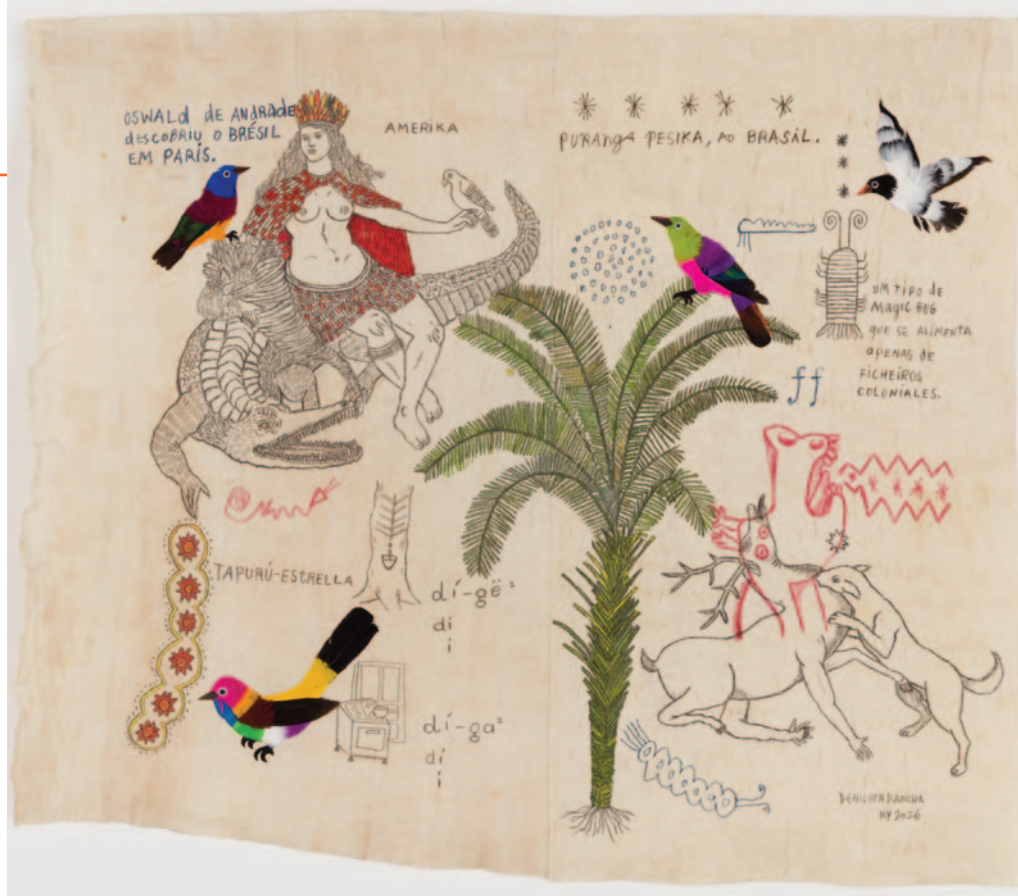 OSWALD DE ANDRADE
DESCOBRIU O BRÉSIL
EM PARÍS.
AMERIKA
PURANGA PESIKA, AO BRASÁL.
UM TIPO DE
MAGIC BUG
QUE SE ALIMENTA
APENAS DE
FICHEIROS
COLONIALES.
ff
TAPURÚ-ESTRELLA
dí-gë²
dí
i
dí-ga²
dí
i
DENILSON BANIWA
NY 2026